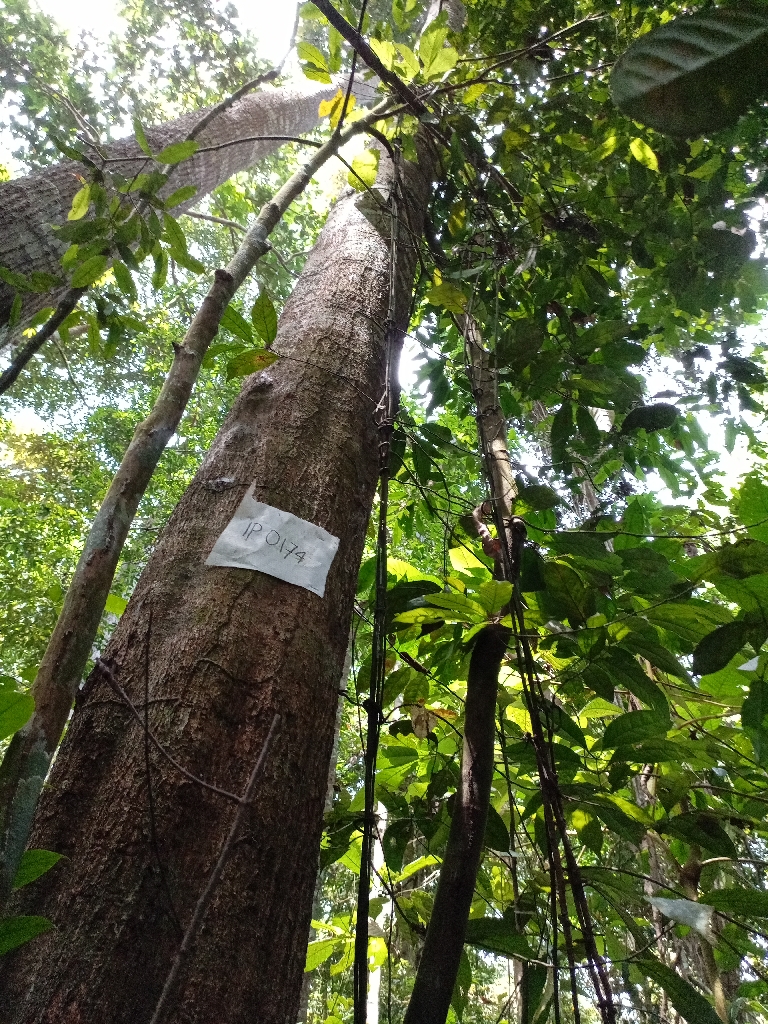 IP 0174